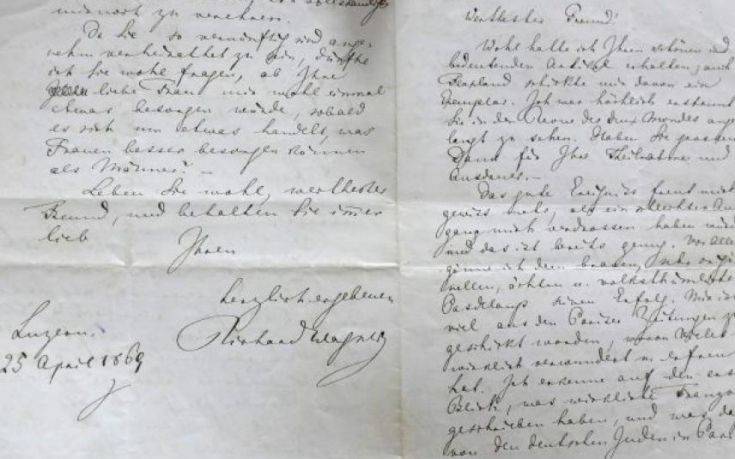 zu verehren.
Da Sie so vernünftig sind ange-
nehm verheirathet zu sein, dürfte
ich Sie wohl fragen, ob Ihre
liebe Frau mir wohl einmal
etwas besorgen würde, sobald
es sich um etwas handelt, was
Frauen besser besorgen können
als Männer? —
Leben Sie wohl, werthester
Freund, und behalten Sie im̅er
lieb
Ihren
herzlich ergebenen
Richard Wagner
Luzern.
25 April 1869
Werthester Freund!
Wohl hatte ich Ihren schönen und
bedeutenden Artikel erhalten; auch
schickte mir davon ein
Exemplar. Ich war höchlich erstaunt
Sie in der Revue des deux Mondes
zu sehen. Haben Sie
Dank für Ihre Theilnahme und
Ausdauer. —
Das gute Ereigniss freut mich
gewiss mehr, als ein schlechter
gang mich verdrossen haben würde
und das ist bereits genug. Vor Allem
gönne ich dem braven, sehr
ächten u. volksthümlichen
Pasdeloup seinen Erfolg. Mir ist
viel aus den Pariser Zeitungen
geschickt worden, wovon Vieles
wirklich verwundert u. erfreut
hat. Ich erkenne auf den ersten
Blick, was wirkliche Franzosen
geschrieben haben, und was da
von den deutschen Juden in Paris